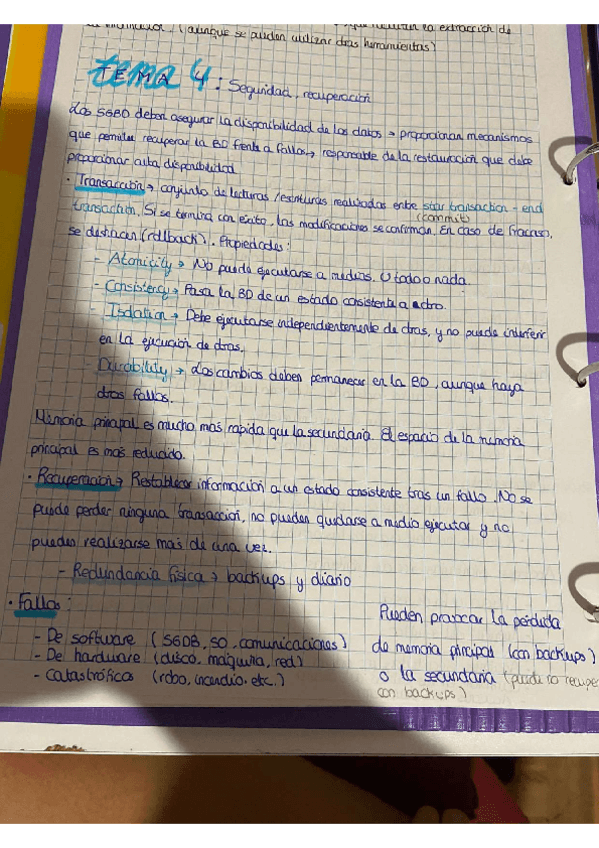 la extracción de
(aunque se puedan utilizar otras herramientas)
TEMA 4: Seguridad, recuperación
Los SGBD deben asegurar la disponibilidad de los datos → proporcionan mecanismos
que permiten recuperar la BD frente a fallos → responsable de la restauración que debe
proporcionar alta disponibilidad.
· Transacción → conjunto de lecturas/escrituras realizadas entre star transaction - end
transaction. Si se termina con éxito, las modificaciones se confirman. En caso de fracaso,
(commit)
se deshacen (rollback). Propiedades:
- Atomicity → No puede ejecutarse a medias. O todo o nada.
- Consistency → Pasa la BD de un estado consistente a otro.
- Isolation → Debe ejecutarse independientemente de otras, y no puede interferir
en la ejecución de otras.
Durability → Los cambios deben permanecer en la BD, aunque haya
otros fallos.
Memoria principal es mucho más rapida que la secundaria. El espacio de la memoria
principal es más reducido.
· Recuperación → Restablecer información a un estado consistente tras un fallo. No se
puede perder ninguna transacción, no pueden quedarse a medio ejecutar y no
pueden realizarse más de una vez.
- Redundancia física → backups y diario
· Fallos:
- De software (SGDB, SO, comunicaciones)
- De hardware (disco, maquina, red)
- Catastróficos (robo, incendio, etc.)
Pueden provocar la pérdida
de memoria principal (con backups)
o la secundaria (puede no recupe
con backups)